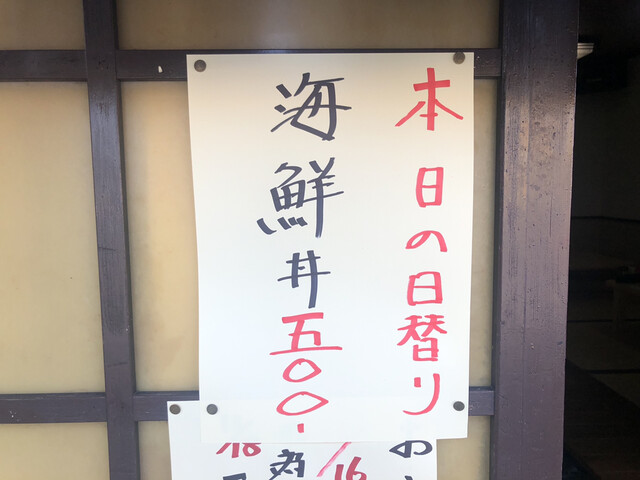 本日の日替り
海鮮丼五〇〇-